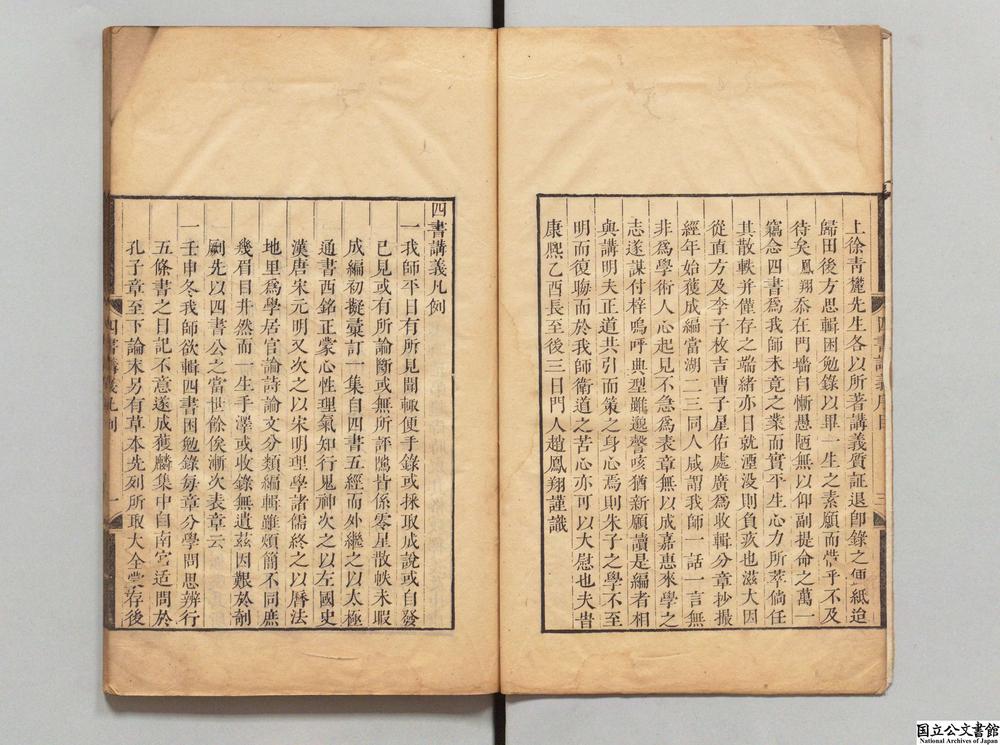 上徐青麓先生各以所著講義質証退卽錄之便紙迨
歸田後方思輯困勉錄以畢一生之素願而惜乎不及
待矣鳳翔忝在門墻自慚愚陋無以仰副提命之萬一
竊念四書爲我師未竟之業而實平生心力所萃倘任
其散軼并僅存之端緒亦日就湮没則負疚也滋大因
從直方及李子枚吉曹子星佑處廣爲收輯分章抄撮
經年始獲成編當湖二三同人咸謂我師一話一言無
非爲學術人心起見不急爲表章無以成嘉惠來學之
志遂謀付梓嗚呼典型雖邈謦咳猶新願讀是編者相
與講明夫正道共引而策之身心焉則朱子之學不至
明而復晦而於我師衛道之苦心亦可以大慰也夫旹
康熙乙酉長至後三日門人趙鳳翔謹識
四書講義序目
三
四書講義凡例
一我師平日有所見聞輙便手錄或採取成說或自發
已見或有所論斷或無所評隲皆係零星散帙未暇
成編初擬彙訂一集自四書五經而外繼之以太極
通書西銘正蒙心性理氣知行鬼神次之以左國史
漢唐宋元明又次之以宋明理學諸儒終之以曆法
地里爲學居官論詩論文分類編輯雖煩簡不同庶
幾眉目井然而一生手澤或收錄無遺茲因艱於剞
劂先以四書公之當世餘俟漸次表章云
一壬申冬我師欲輯四書困勉錄每章分學問思辨行
五條書之日記不意遂成獲麟集中自南宮适問於
孔子章至下論末另有草本先列所取大全蒙存後
四書講義凡例
一
国立公文書館
National Archives of Japan